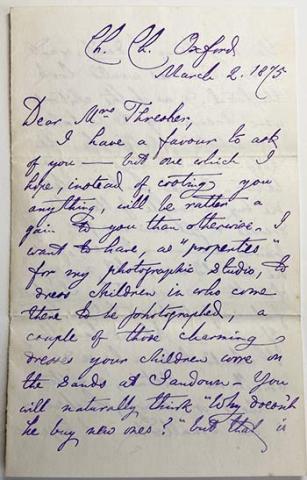 Ch. Ch. Oxford
March 2. 1875
Dear Mrs Thresher,
I have a favour to ask
of you — but one which I
hope, instead of costing you
anything, will be rather a
gain to you than otherwise. I
want to have, as "properties"
for my photographic studio, to
dress children in who come
there to be photographed, a
couple of those charming
dresses your children wore on
the sands at Sandown — You
will naturally think "Why doesn't
he buy new ones?" but that is